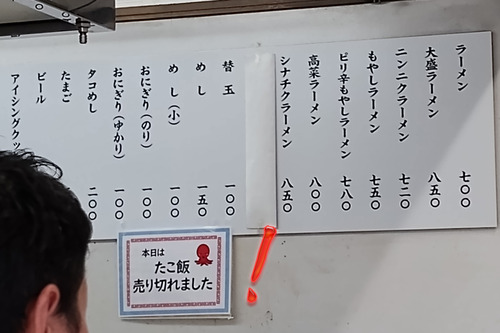 ラーメン 七〇〇
大盛ラーメン 八五〇
ニンニクラーメン 七二〇
もやしラーメン 七五〇
ピリ辛もやしラーメン 七八〇
高菜ラーメン 八〇〇
シナチクラーメン 八五〇
替玉 一〇〇
めし 一五〇
めし(小) 一〇〇
おにぎり(のり) 一〇〇
おにぎり(ゆかり) 一〇〇
タコめし 二〇〇
たまご
ビール
アイシングクッ
本日は
たこ飯
売り切れました